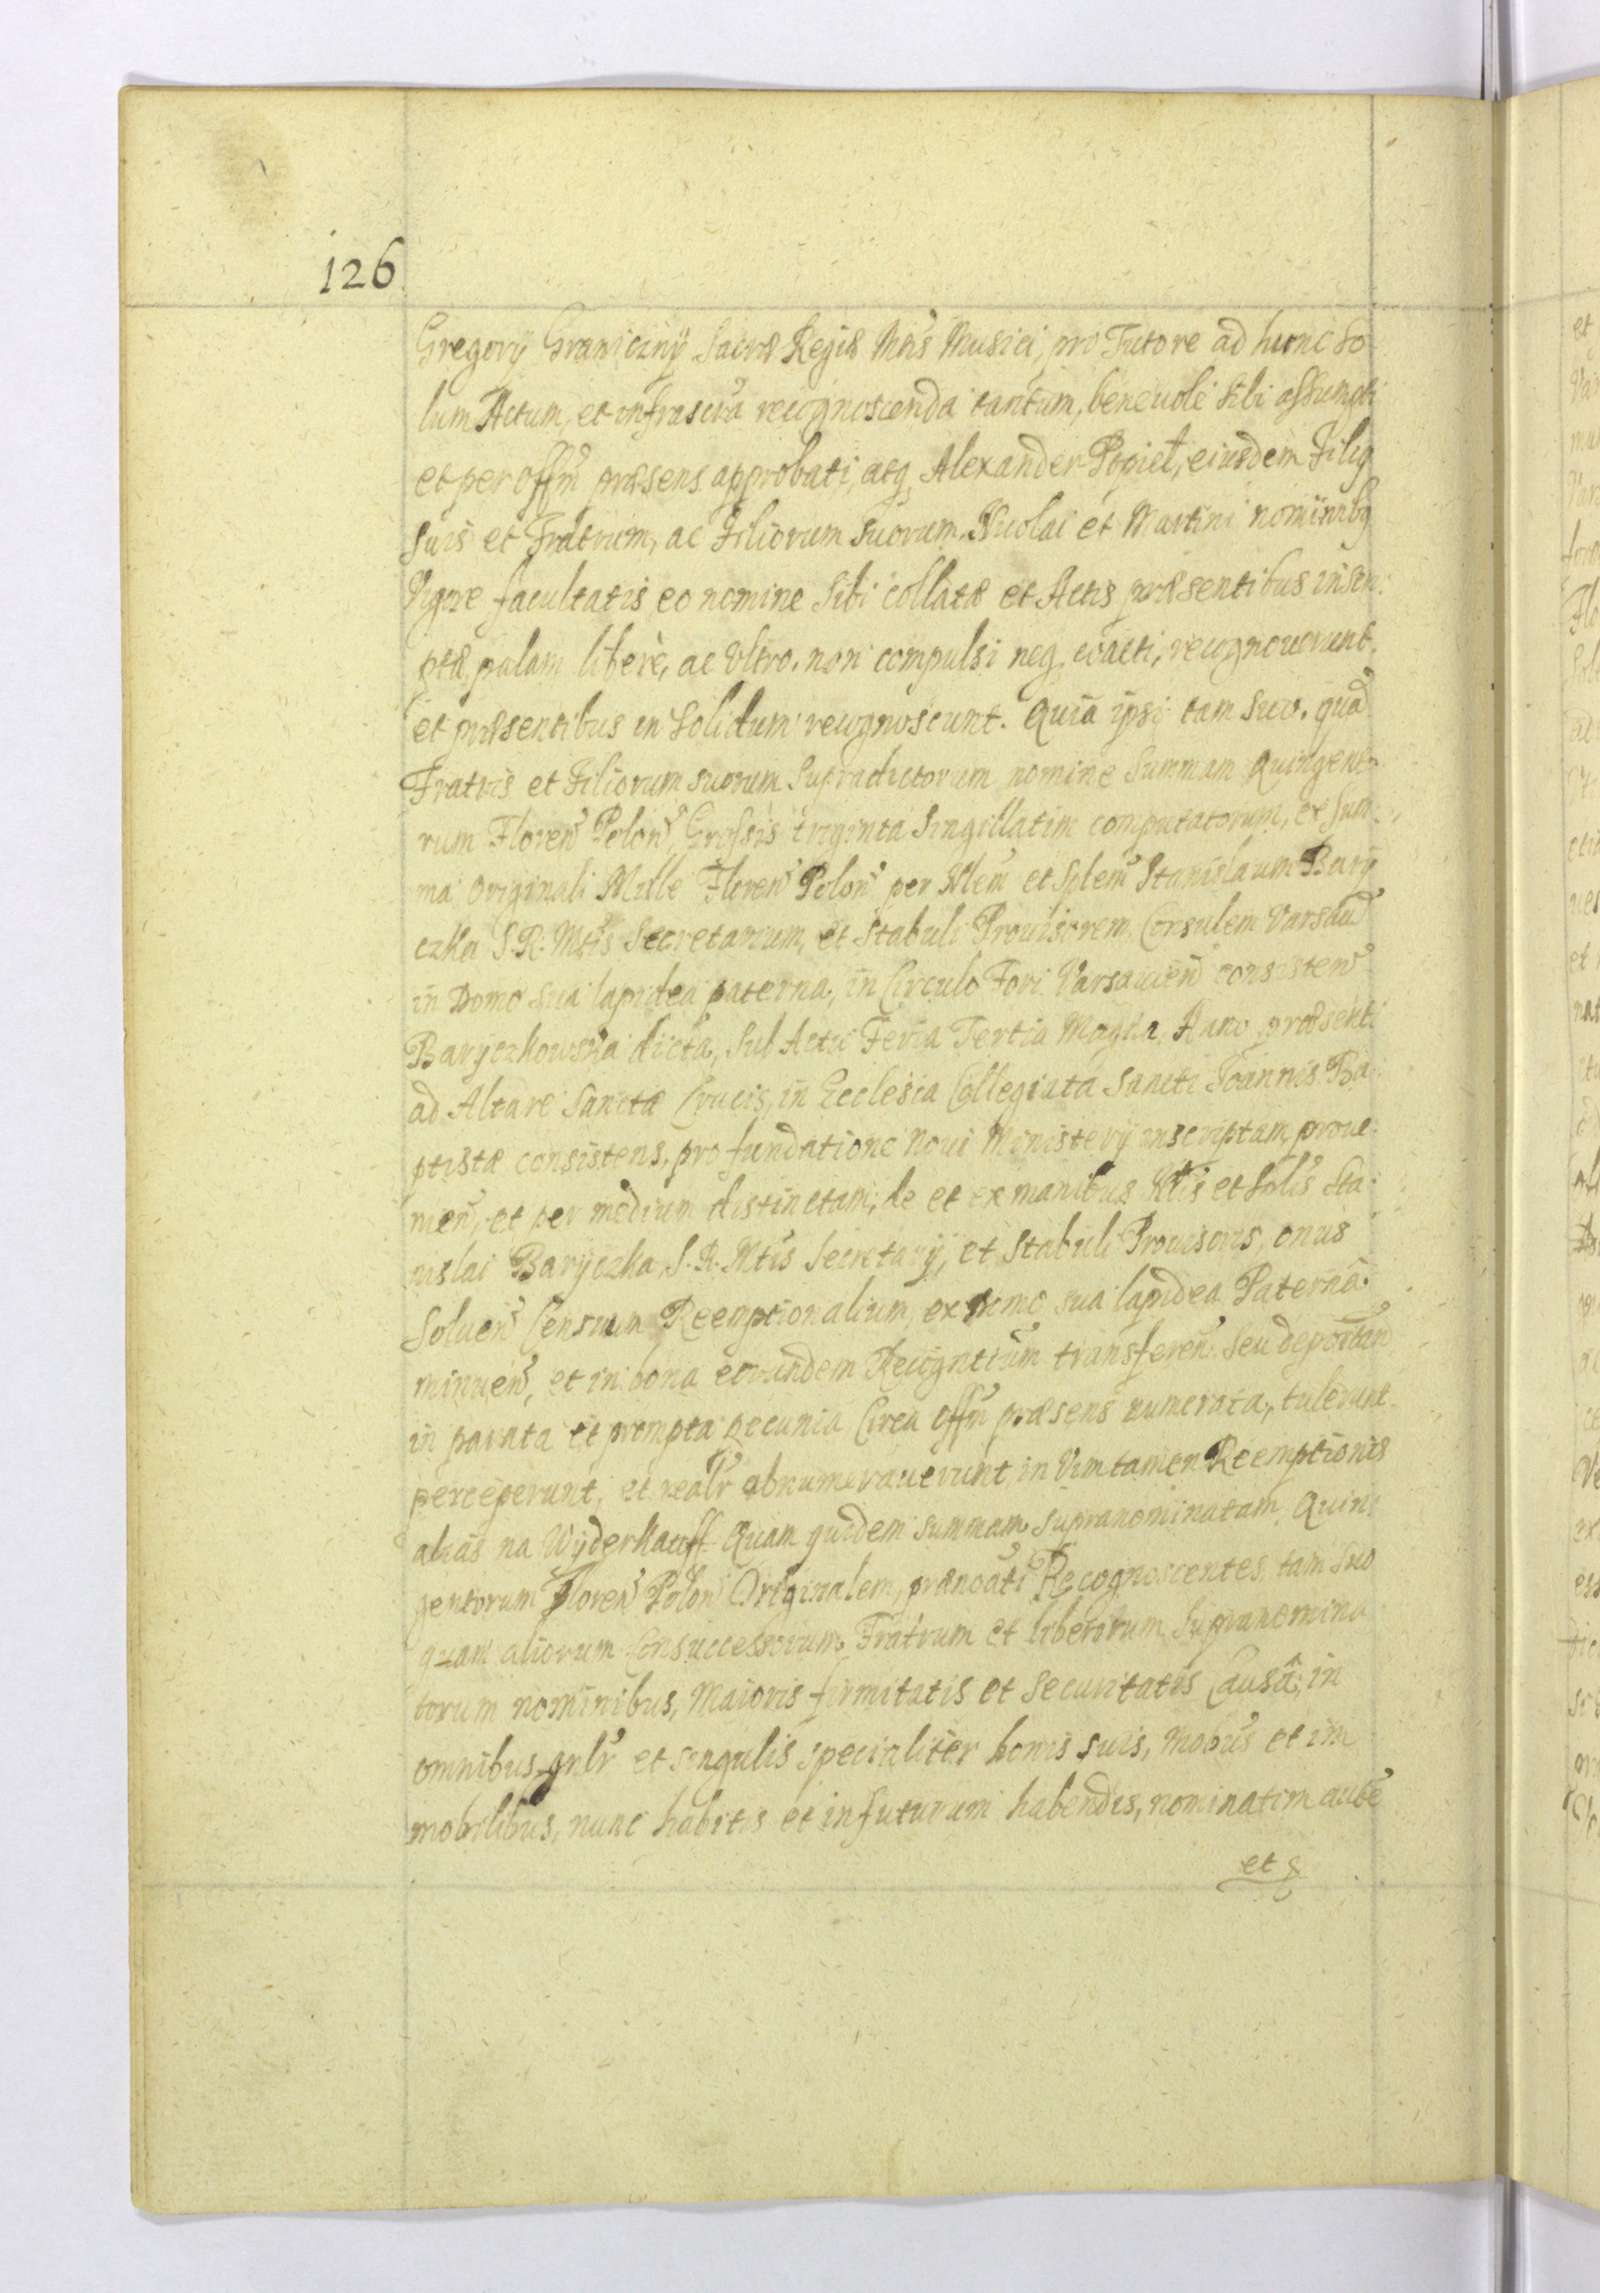 126
Gregorÿ Graniczny Sacræ Regiæ Mtis Musici, pro Tutore ad hunc so
lum Actum, et infrascra recognoscenda tantum, beneuole sibi assumpti
et per offm præsens approbati, atq Alexander Popiel, eiusdem Filiq
suis et Fratrum, ac Filiorum suorum, Nicolai et Martini nominibq
Vigore facultatis eo nomine sibi collatæ et Actis præsentibus inscri
ptæ, palam liberè, ac Vltro, non compulsi neq coacti, recognouerunt,
et præsentibus in solidum recognoscunt. Quia ipsi tam suo, quā
Fratris et Filiorum suorum supradictorum nomine Summam Quingento
rum Floren Polon, Grossis triginta singillatim computatorum, ex Sum
ma originali Mille Floren Polon per Nlem et Splem Stanislaum Barÿ
czka S. R. Mtis Secretarium, et Stabuli Prouisorem Consulem Varsau
in Domo sua lapidea paterna, in Circulo Fori Varsauien consisten
Baryczkowska dicta, sub Actu Feria Tertia Magna Anno præsenti
ad Altare Sanctæ Crucis, in Ecclesia Collegiata Sancti Joannis Ba
ptistæ consistens, pro fundatione Noui Ministerÿ inscriptam, proue
nien, et per medium distinctam, de et ex manibus Nlis et Splis Sta
nislai Barÿczka, S. R. Mtis Secretarÿ, et Stabuli Prouisoris, onus
Soluen Censuum Reemptionalium, ex Domo sua lapidea Paterna
minuen, et in bona eorundem Recogntium transferen seu deportan
in parata et prompta pecunia Circa offm præsens numerata, tulerunt
perceperunt, et realr abnumerauerunt, in Vim tamen Reemptionis
alias na Wÿderkauff Quam quidem summam supranominatam Quin
gentorum Floren Polon Originalem, prænoati Recognoscentes, tam suo
quam aliorum Consuccessorum Fratrum et liberorum supranomina
torum nominibus, Maioris firmitatis et securitatis Causâ, in
omnibus gnlr et singulis specialiter bonis suis, Mobus et im
mobilibus, nunc habitis et in futurum habendis, nominatim aute
et s